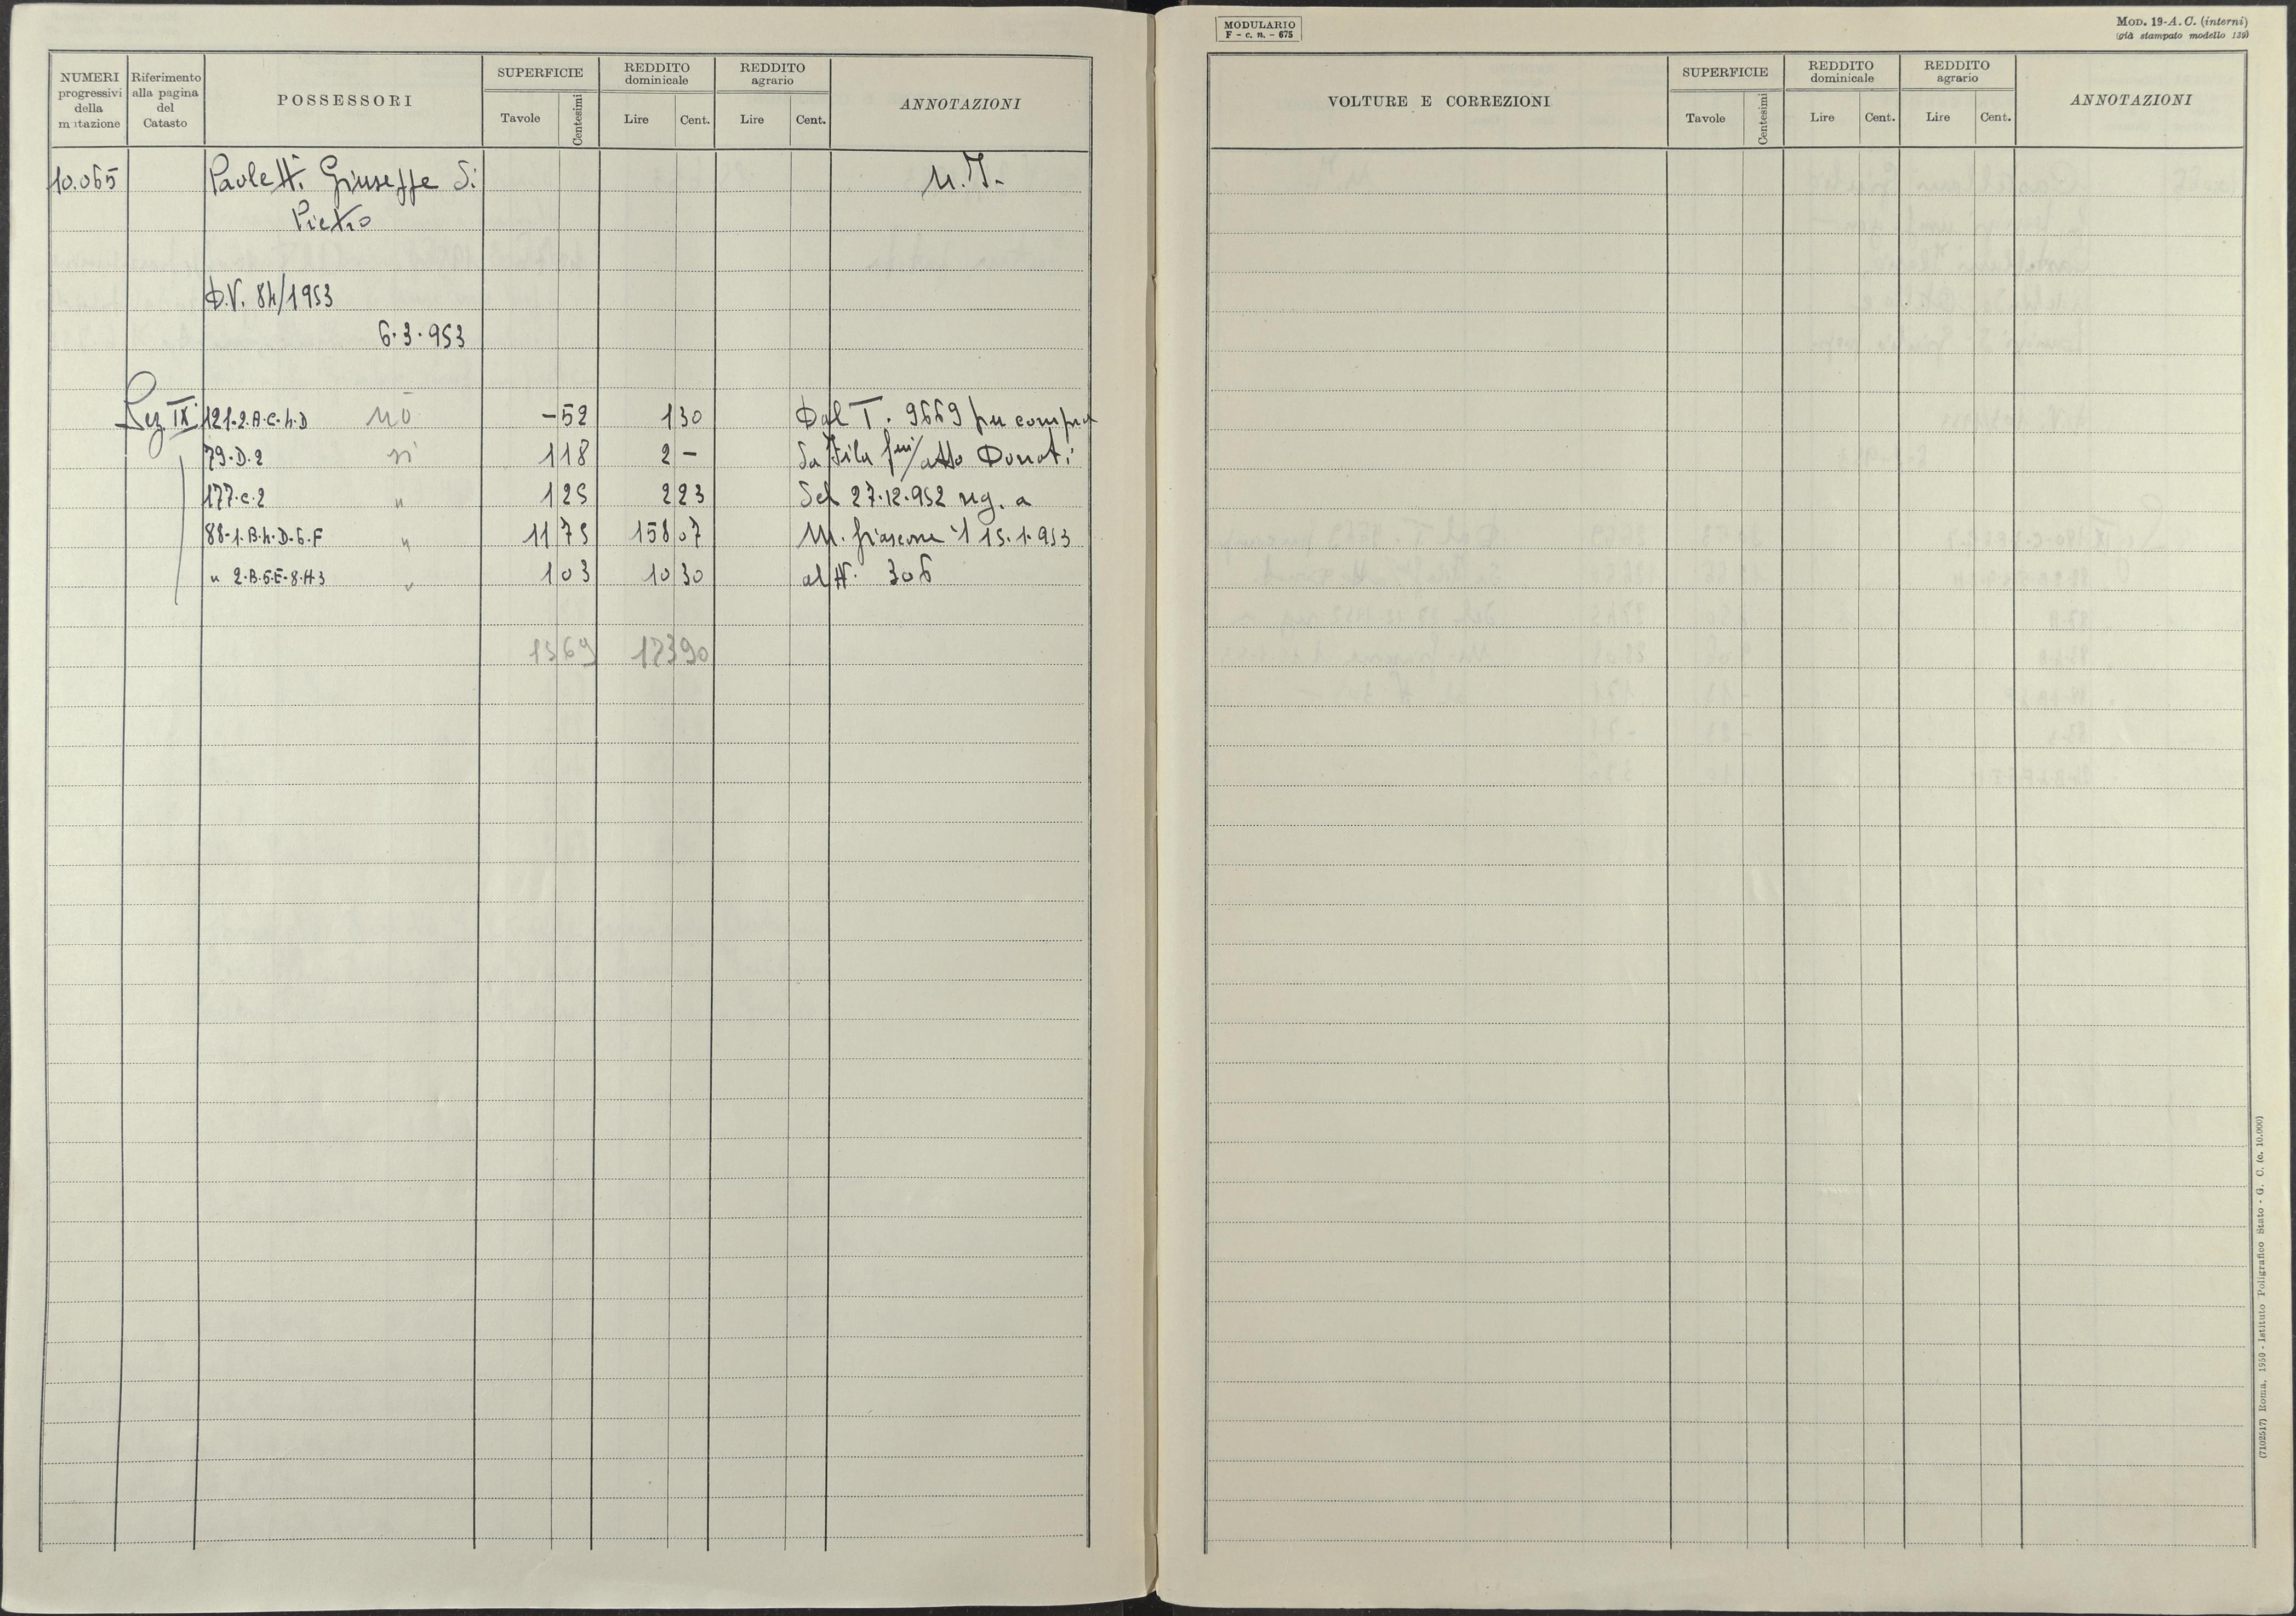 NUMERI progressivi della mutazione
Riferimento alla pagina del Catasto
POSSESSORI
SUPERFICIE
Tavole Centesimi
REDDITO dominicale
Lire Cent.
REDDITO agrario
Lire Cent.
ANNOTAZIONI
10.065 Paoletti Giuseppe di M.I.
Pietro
D.V. 84/1953
6.3.953
Sez IX 121-2.A.C.4.D no -52 1 30 Dal T. 9669 per compra
79.D.2 si 1 18 2 - da Fila
atto Donati
177.C.2 " 1 25 2 23 del 27.12.952 reg. a
88-1.B.4.D.6.F " 11 75 158 07 M. fiascone il 15.1.953
" 2.B.6.E.8.H3 " 1 03 10 30 al N. 306
15 69 173 90
MODULARIO
F - c. n. - 675
MOD. 19-A. C. (interni)
(già stampato modello 139)
VOLTURE E CORREZIONI
SUPERFICIE
Tavole Centesimi
REDDITO dominicale
Lire Cent.
REDDITO agrario
Lire Cent.
ANNOTAZIONI
(7102517) Roma, 1950 - Istituto Poligrafico Stato - G. C. (c. 10.000)